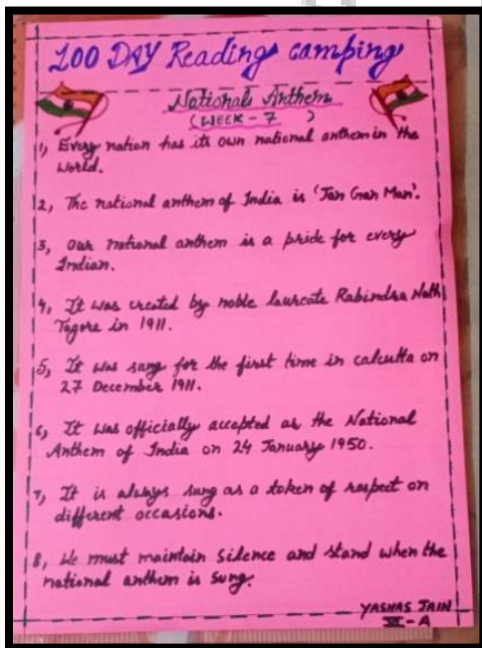 100 DAY Reading camping
National Anthem
(WEEK - 7 )
1, Every nation has its own national anthem in the
World.
2, The national anthem of India is 'Jan Gan Man'.
3, Our national anthem is a pride for every
Indian.
4, It was created by noble laureate Rabindra Nath
Tagore in 1911.
5, It was sung for the first time in calcutta on
27 December 1911.
6, It was officially accepted as the National
Anthem of India on 24 January 1950.
7, It is always sung as a token of respect on
different occasions.
8, We must maintain silence and stand when the
national anthem is sung.
YASHAS JAIN
VI - A